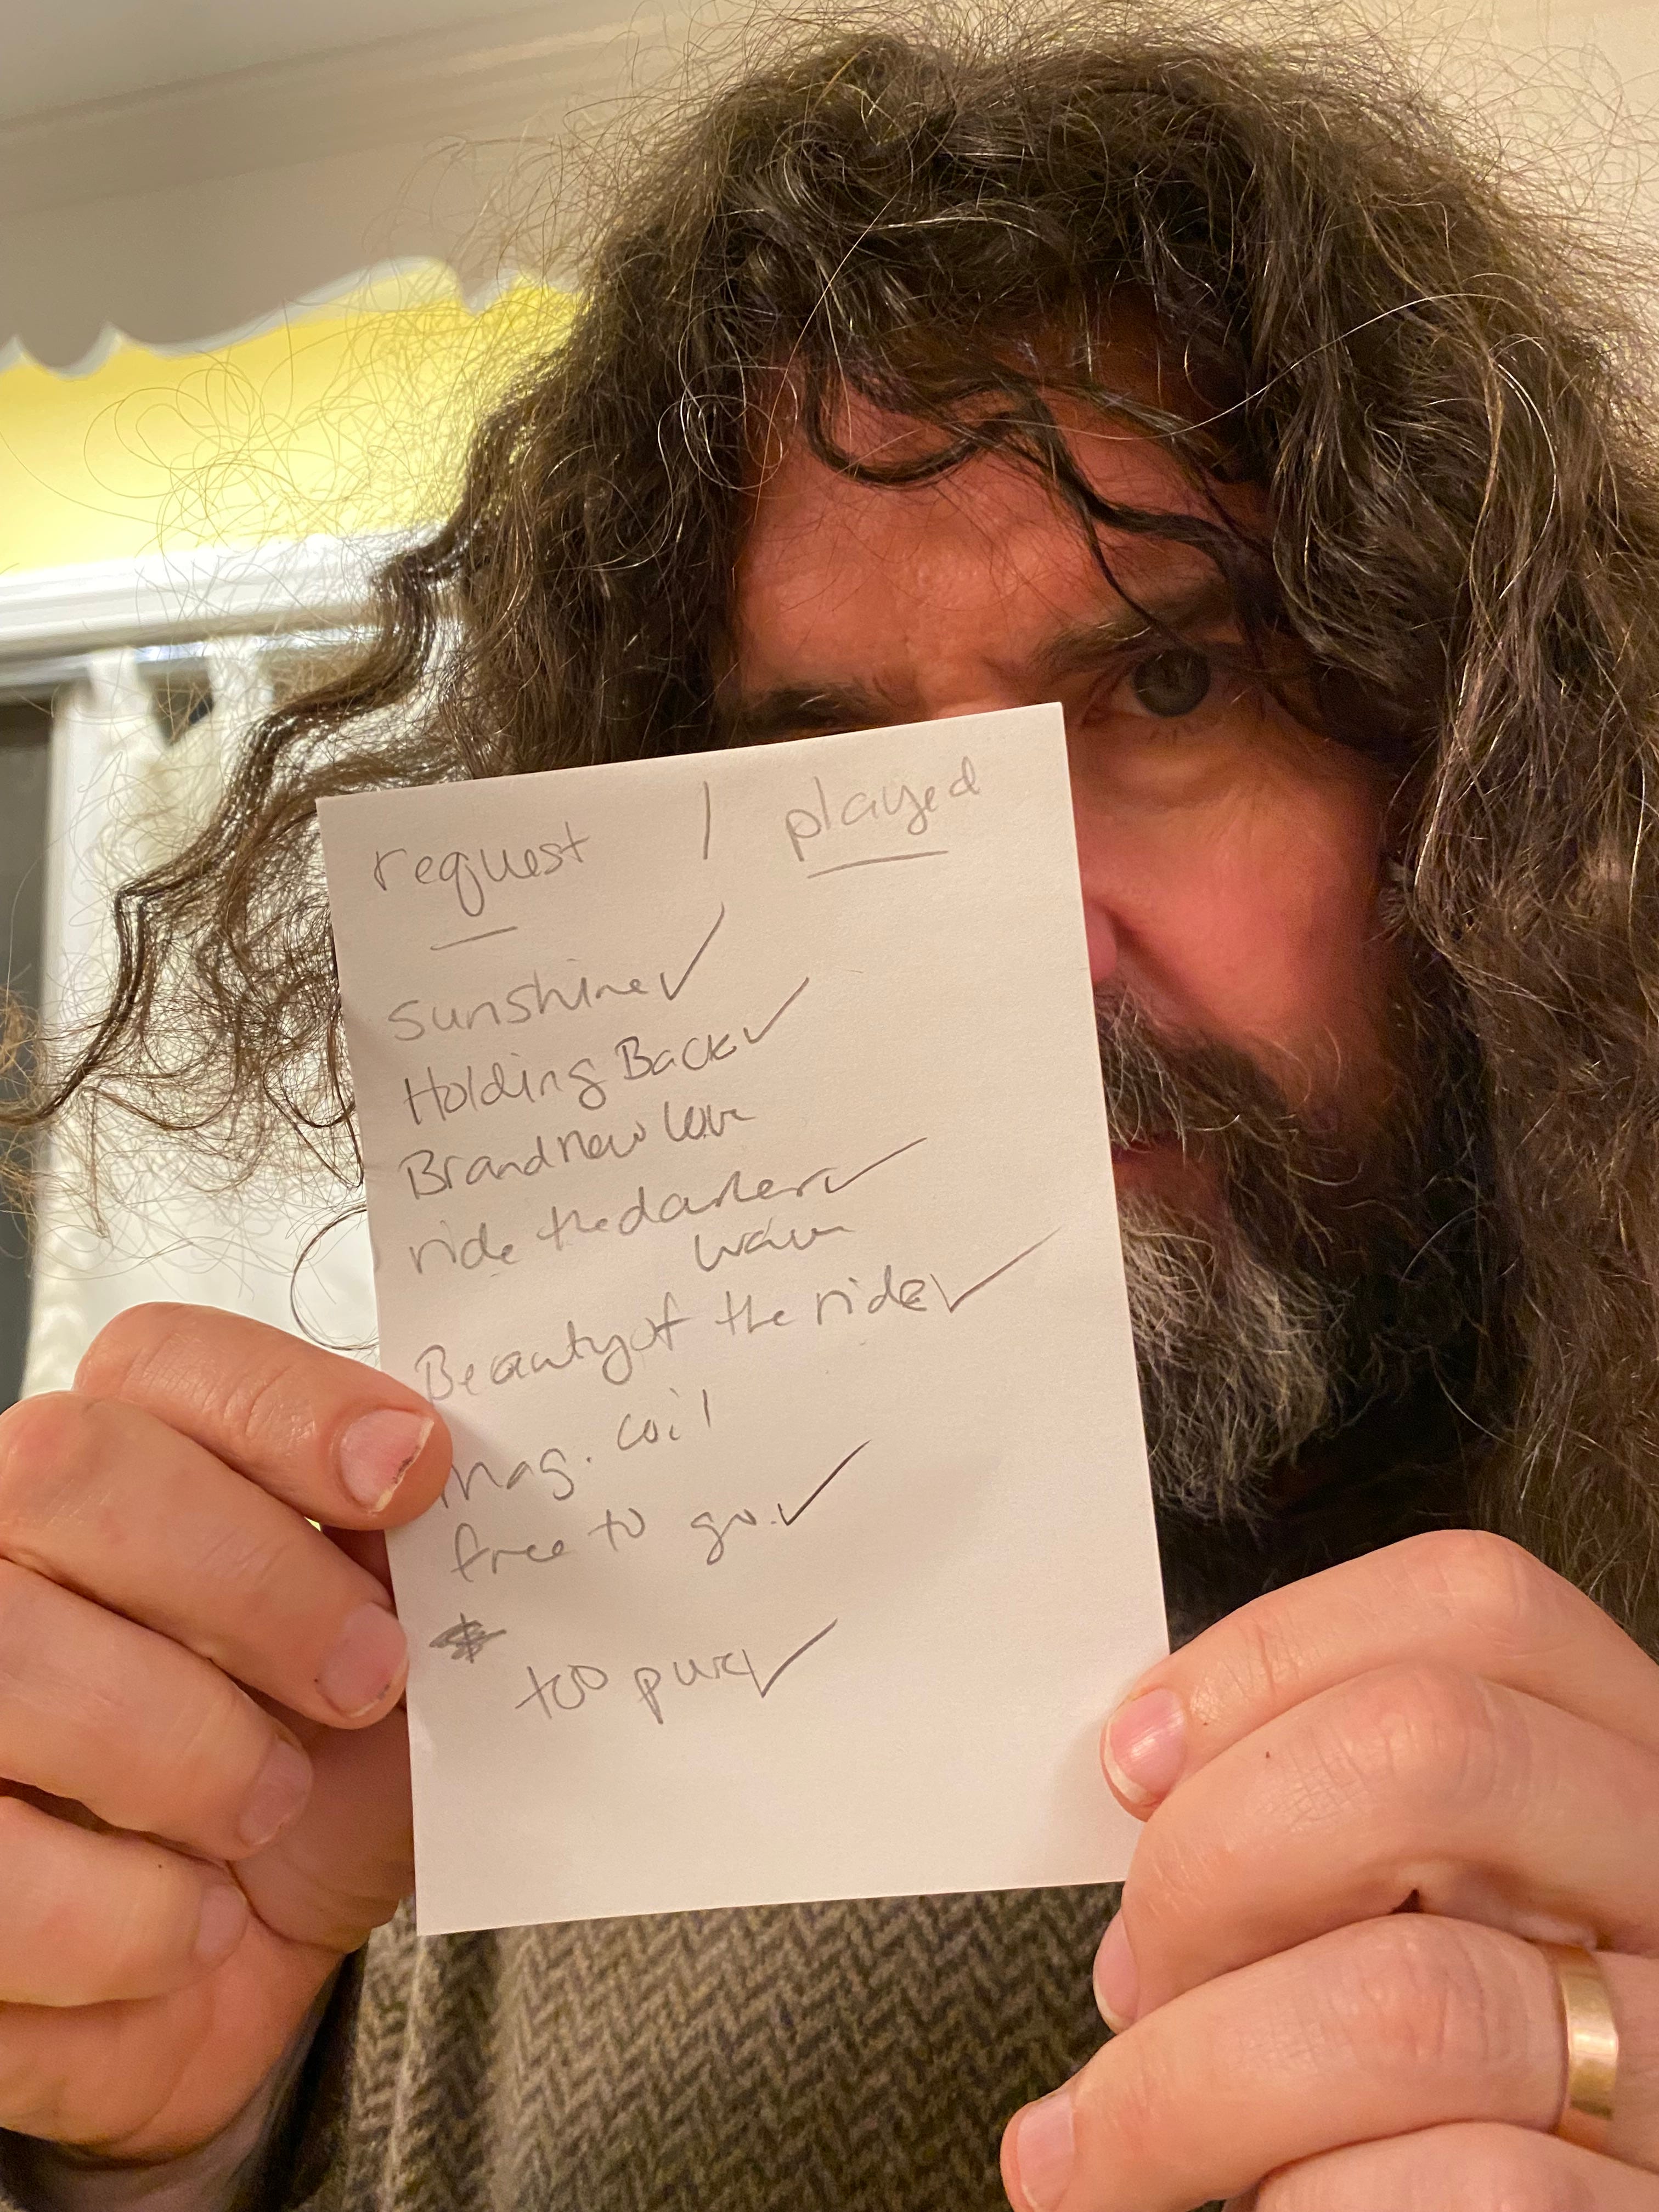 request / played
sunshine ✓
Holding Back ✓
Brand new love
ride the darker ✓
wave
Beauty of the ride ✓
mag. coil
free to go. ✓
*
too pure ✓